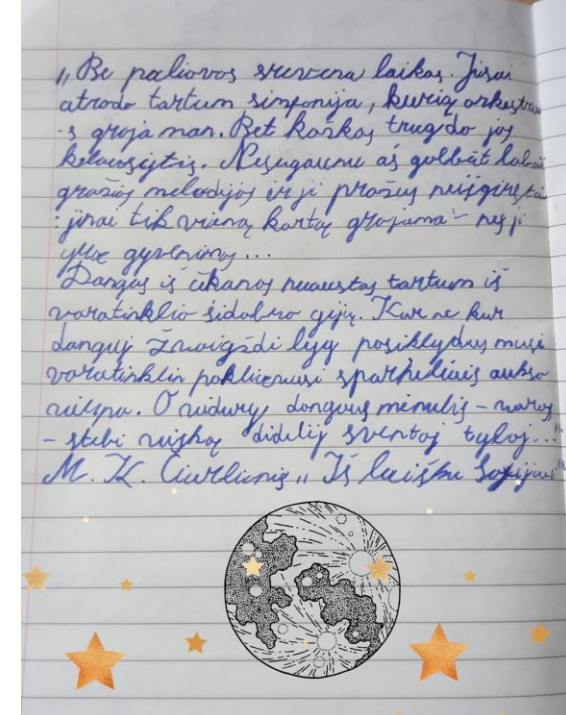 „Be paliovos srovena laikas. Jisai
atrodo tartum simfonija, kurią orkestra
-s groja man. Bet kažkas trugdo jos
klausytis. Nesugaunu aš galbūt labai
gražios melodijos ir ji prašus neišgirsta
: jinai tik vieną kartą grojama - nes ji
yra gyvenimas...
Dangus iš ūkanos nuaustas tartum iš
voratinklio sidabro gijų. Kur ne kur
danguj žvaigždė lyg pasiklydus musė
voratinklin pakliuvusi sparneliais aukso
virpa. O vidury dangaus mėnulis - varos
- stebi viską didelėj šventoj tyloj..."
M. K. Čiurlionis „Iš laiškų Sofijai"